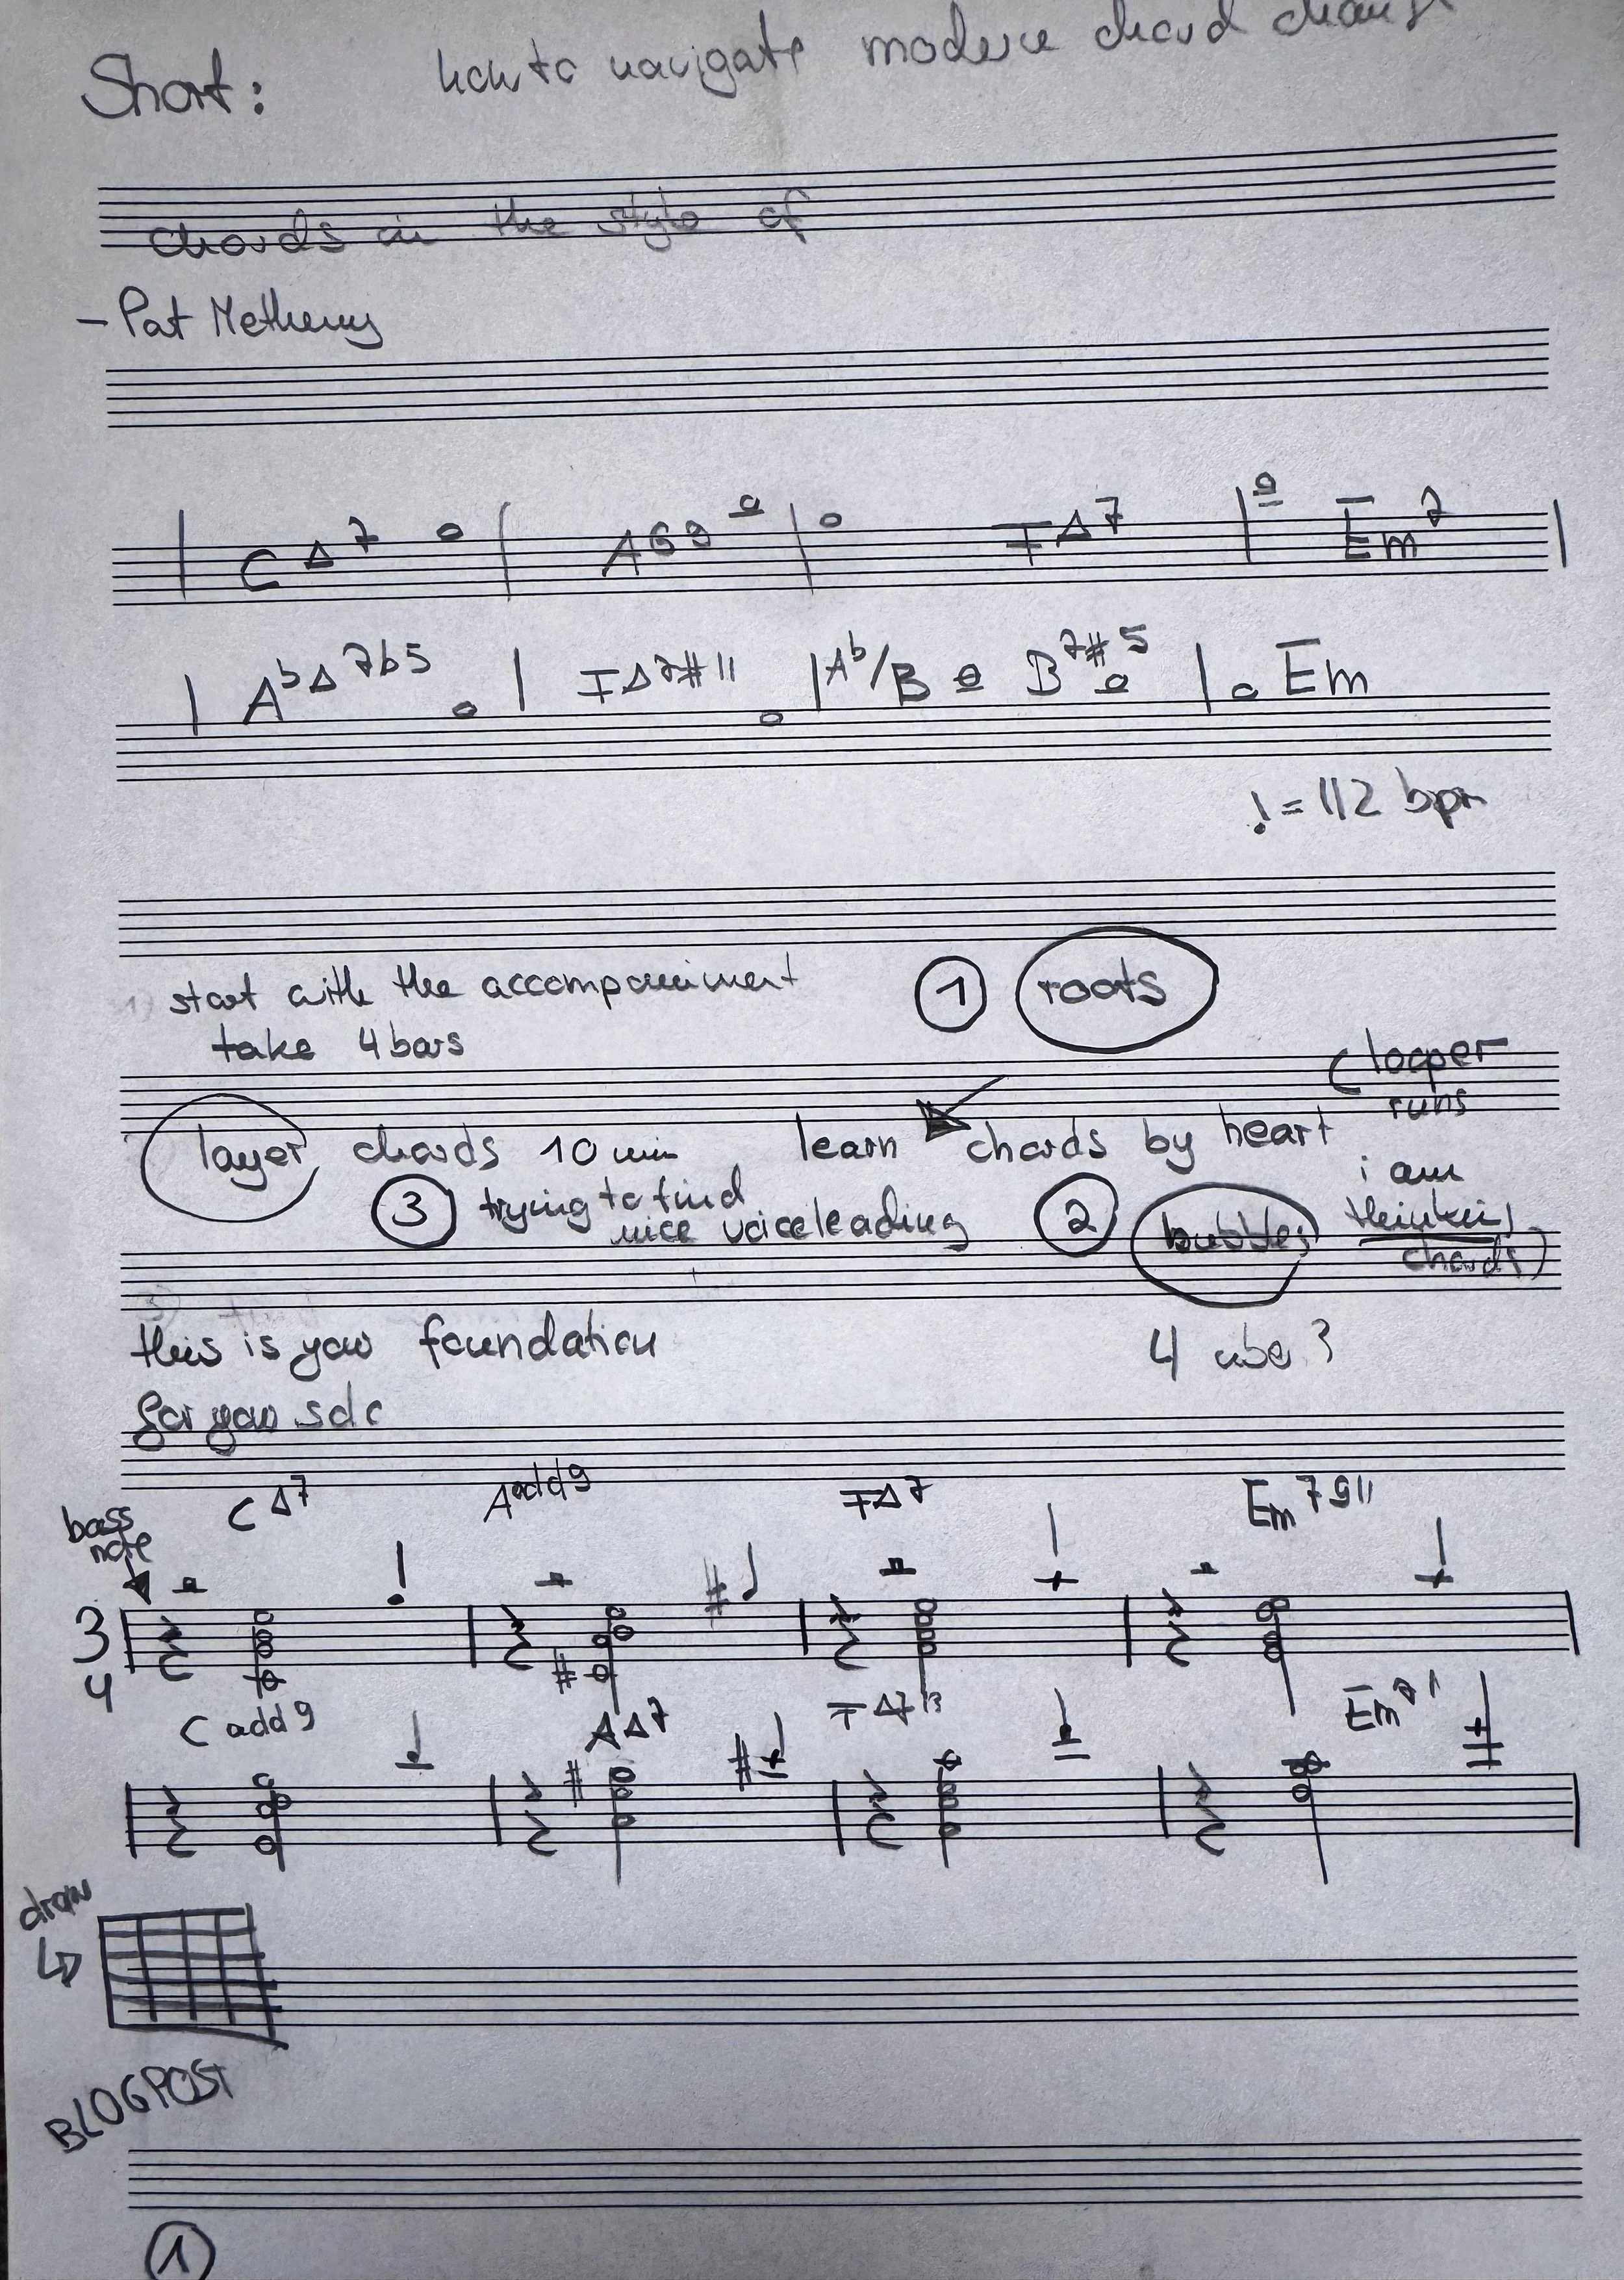 Short: how to navigate modern chord
chords in the style of
- Pat Metheny
| C Δ7 | A 6 9 | F Δ7 | Em7 |
| Ab Δ 7b5 | F Δ7#11 | Ab/B B7#5 | Em
= 112 bpm
start with the accompaniment ① roots
take 4 bars
(looper
runs
layer chords 10 min learn chords by heart
i am
③ trying to find
nice voiceleading ② bubbles thinking
chords)
this is your foundation 4
for your solo
C Δ7 A add9 F Δ7 Em 7 9 11
bass
note
3
4
C add9 A Δ7 F Δ7 13 Em
draw
BLOGPOST
①